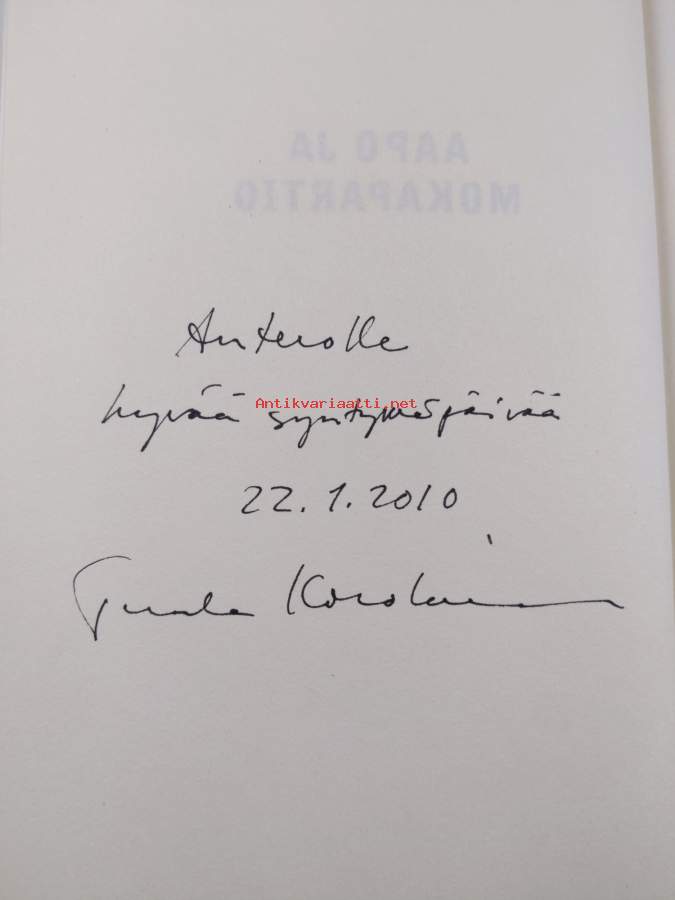 AAPO JA
MOKAPARTIO
Anterolle
hyvää syntymäpäivää
Antikvariaatti.net
22.1.2010
Tuula Korolainen